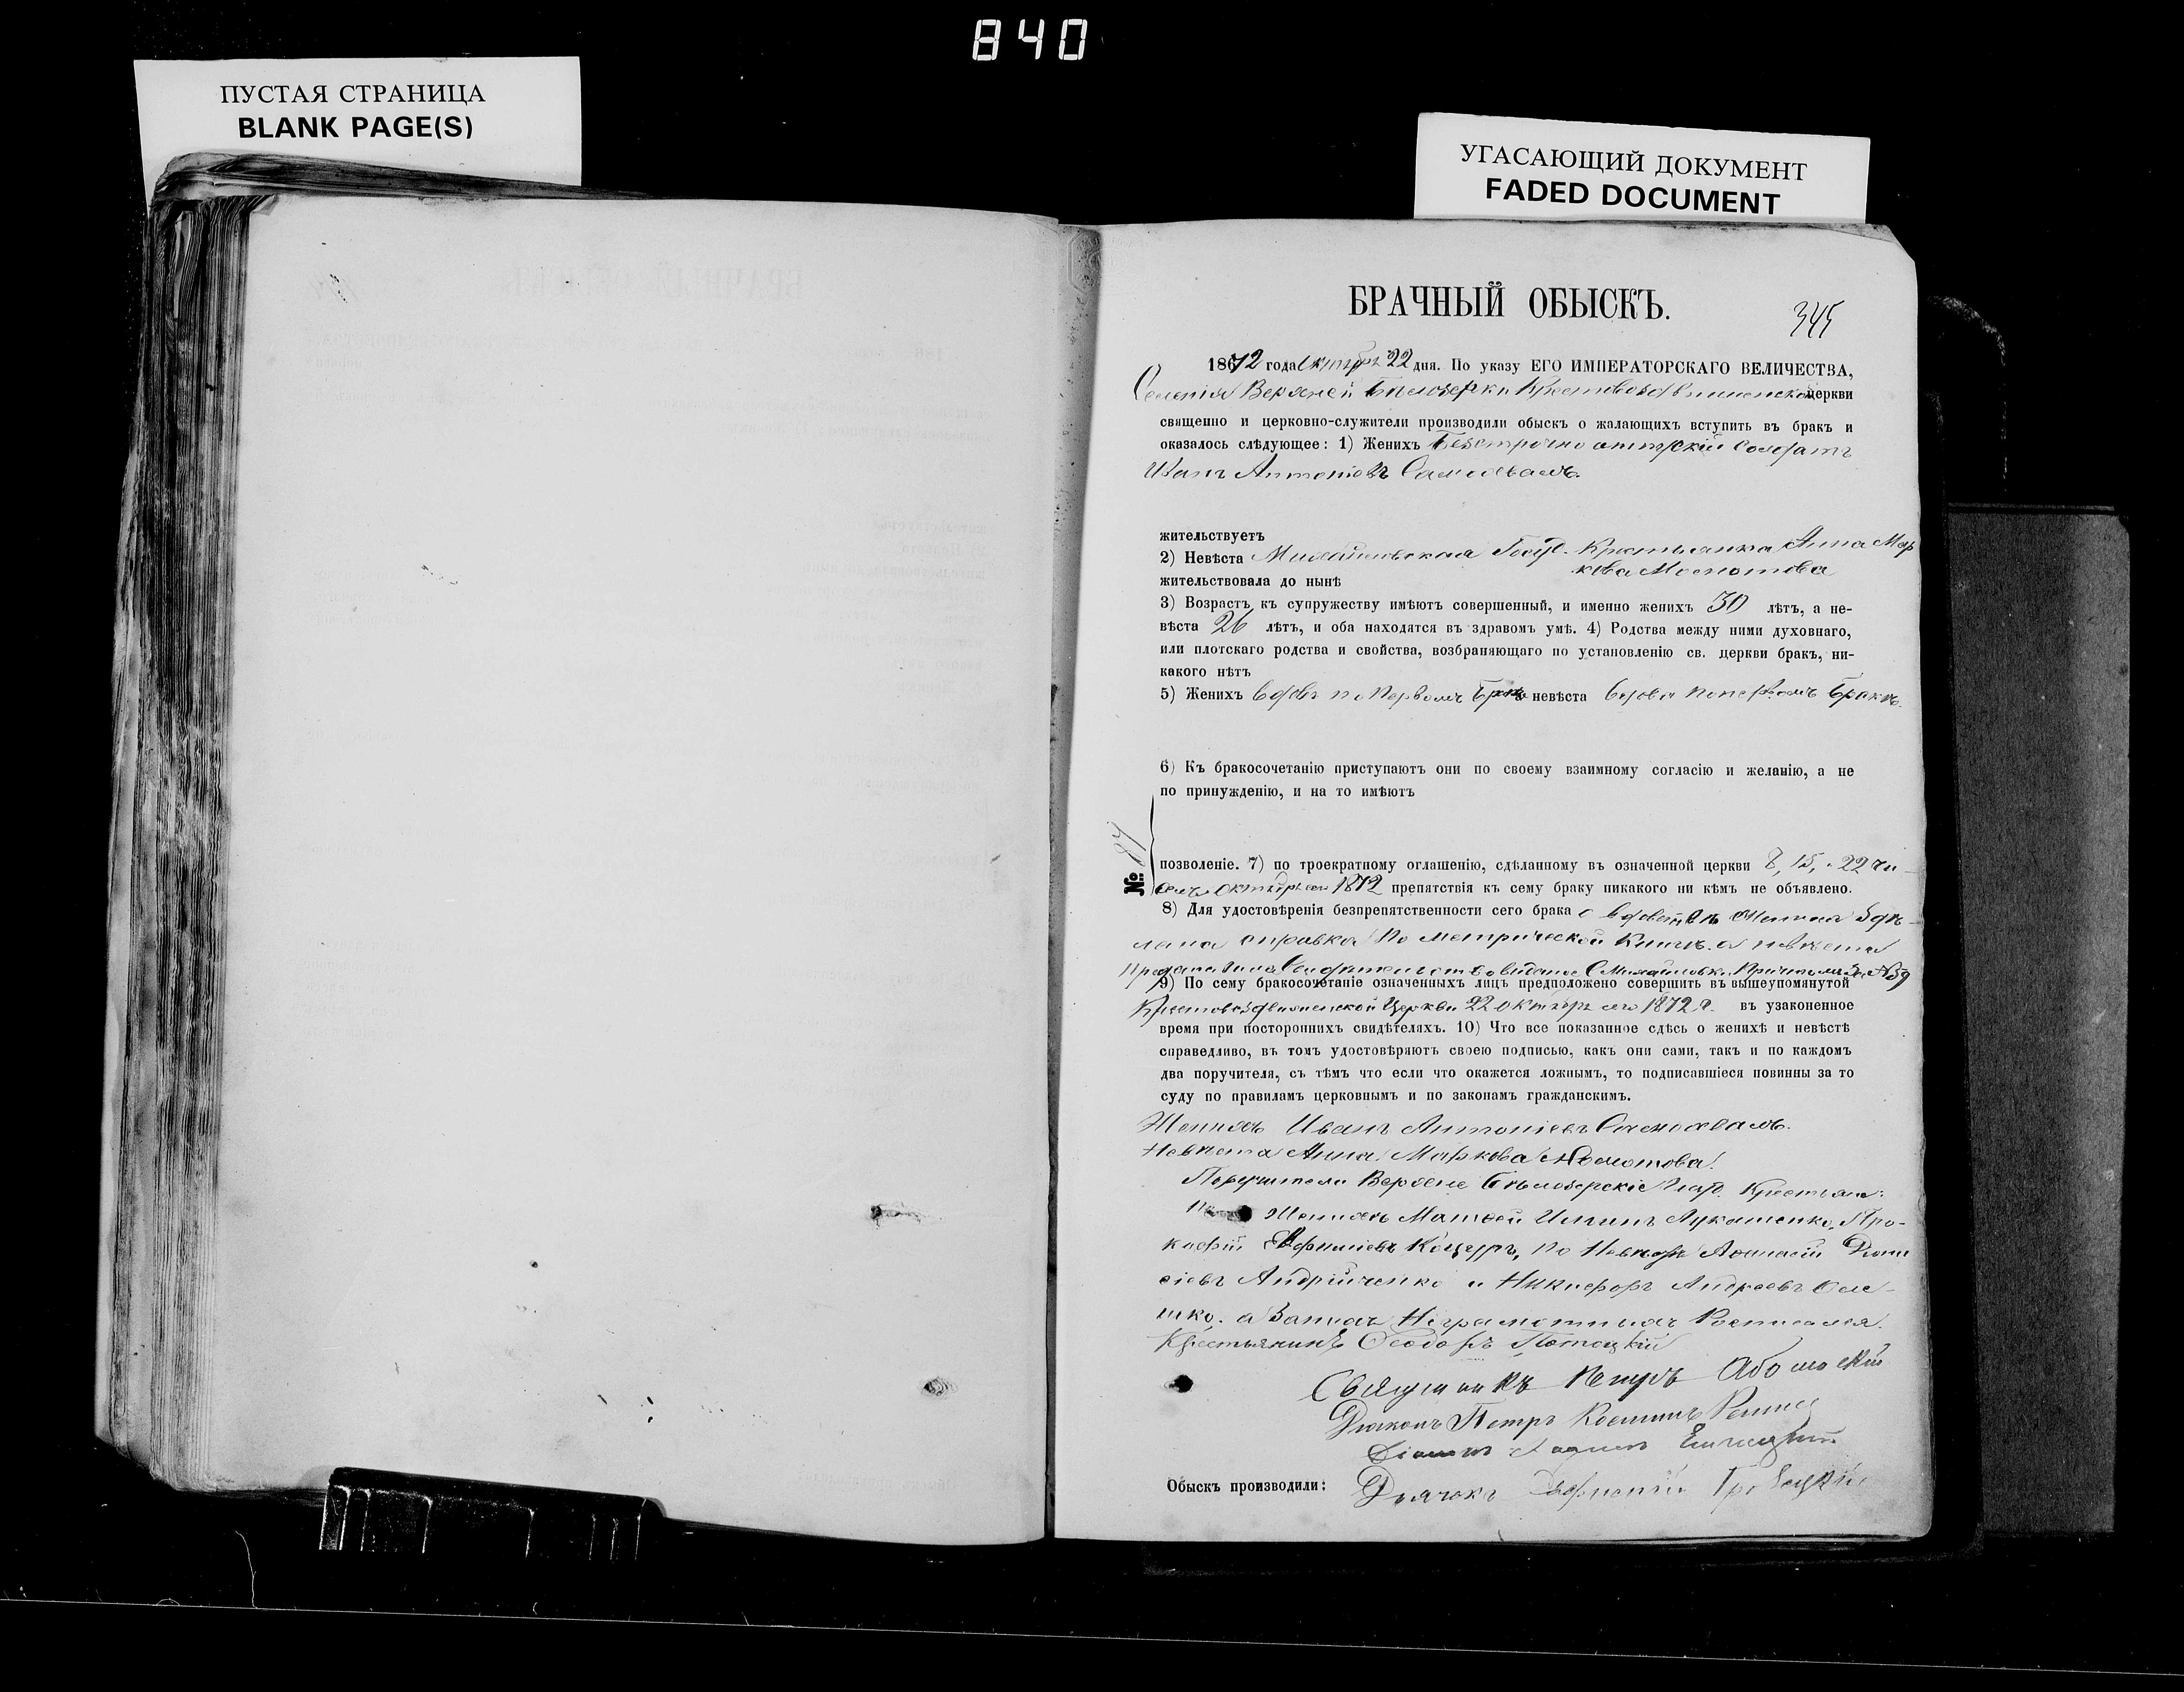 840
ПУСТАЯ СТРАНИЦА
BLANK PAGE(S)
УГАСАЮЩИЙ ДОКУМЕНТ
FADED DOCUMENT
БРАЧНЫЙ ОБЫСКЪ.
345
1872 года Октября 22 дня. По указу ЕГО ИМПЕРАТОРСКАГО ВЕЛИЧЕСТВА,
Селенія Верхней Бѣлозерки Крестовоздвиженской церкви
священно и церковно-служители производили обыскъ о жалающихъ вступить въ бракъ и
оказалось слѣдующее: 1) Женихъ Безсрочно отпускній Солдатъ
Иванъ Антоніевъ
жительствуетъ
2) Невѣста Михайловская Госуд. Крестьянка Анна Мар
кова
жительствовала до нынѣ
3) Возрастъ къ супружеству имѣютъ совершенный, и именно женихъ 30 лѣтъ, а не-
вѣста 26 лѣтъ, и оба находятся въ здравомъ умѣ. 4) Родства между ними духовнаго,
или плотскаго родства и свойства, возбраняющаго по установленію св. церкви бракъ, ни-
какого нѣтъ
5) Женихъ вдовъ по первомъ бракѣ невѣста вдова по первомъ бракѣ.
6) Къ бракосочетанію приступаютъ они по своему взаимному согласію и желанію, а не
по принужденію, и на то имѣютъ
№
позволеніе. 7) по троекратному оглашенію, сдѣланному въ означенной церкви 8, 15, 22 чи-
селъ октября 1872 препятствія къ сему браку никакого ни кѣмъ не объявлено.
8) Для удостовѣренія безпрепятственности сего брака о вдовствѣ жениха здѣ-
лана справка по метрической книгѣ. а невѣста
9) По сему бракосочетаніе означенныхъ лицъ предположено совершить въ вышеупомянутой
Крестовоздвиженской Церкви 22 октября 1872 г. въ узаконенное
время при постороннихъ свидѣтеляхъ. 10) Что все показанное сдѣсь о женихѣ и невѣстѣ
справедливо, въ томъ удостовѣряютъ своею подписью, какъ они сами, такъ и по каждомъ
два поручителя, съ тѣмъ что если что окажется ложнымъ, то подписавшіеся повинны за то
суду по правиламъ церковнымъ и по законамъ гражданскимъ.
Женихъ Иванъ Антоніевъ
Невѣста Анна Маркова
Поручители Верхне Бѣлозерскіе Госуд. Крестьяне:
Женихѣ Матвѣй Ильинъ Лукашенко, Про-
кофій Коцуръ, по Невѣстѣ
Андрійченко и Никифоръ Андреевъ Оле-
шко. а за нихъ неграмотныхъ Росписался
Крестьянинъ Ѳеодоръ Потоцкій
Священникъ Петръ
Діаконъ Петръ
Обыскъ производили: Дьячокъ